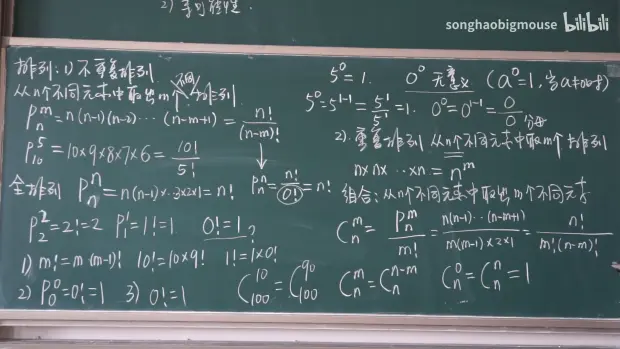 songhaobigmouse bilibili
2) 等可能性.
排列: 1) 不重复排列
从n个不同元素中取出m个不同排列
P_n^m = n(n-1)(n-2)···(n-m+1) = n!/(n-m)!
P_10^5 = 10×9×8×7×6 = 10!/5!
全排列 P_n^n = n(n-1)···3×2×1 = n! P_n^n = n!/0! = n!
P_2^2 = 2! = 2 P_1^1 = 1! = 1 0! = 1 ?
1) m! = m(m-1)! 10! = 10×9! 1! = 1×0!
2) P_0^0 = 0! = 1 3) 0! = 1
5^0 = 1. 0^0 无意义 (a^0 = 1, 当a≠0时)
5^0 = 5^{1-1} = 5^1/5^1 = 1. 0^0 = 0^{1-1} = 0/0 分母
2). 重复排列 从n个不同元素中取m个排列
n×n×···×n = n^m
组合: 从n个不同元素中取出m个不同元素
C_n^m = P_n^m/m! = n(n-1)···(n-m+1)/m(m-1)×2×1 = n!/m!(n-m)!
C_100^10 = C_100^90 C_n^m = C_n^{n-m} C_n^0 = C_n^n = 1